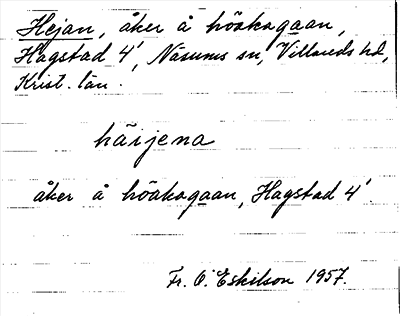 Hejan, åker å höakogaan,
Hagstad 4', Näsums sn, Villands hd,
Krist. län.
häijena
åker å höakogaan, Hagstad 4'.
Fr. O. Eskilson 1957.